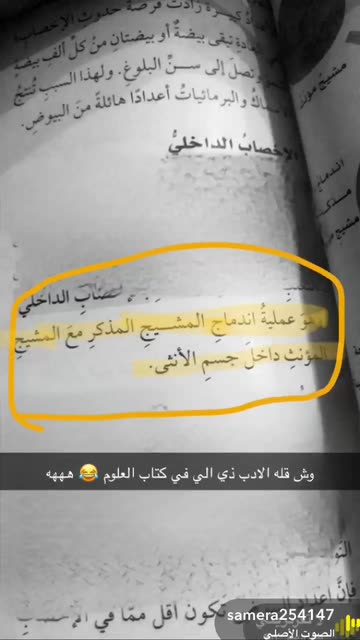 كبيرة زادت فرصة حدوث الإخصاب
يبقى بيضةٌ أو بيضتان من كلِّ ألفِ بيضة
وتصلُ إلى ســنِّ البلوغِ. ولهذا السببِ تُنتِجُ
والبرمائياتُ أعدادًا هائلةً منَ البيوضِ.
مشيج مؤنث
الإخصابُ الداخليُّ
اندماج
مذكر
الداخلي
هوَ عمليةُ اندماجِ المشــيجِ المذكرِ معَ المشيجِ
المؤنثِ داخلَ جسمِ الأنثى.
وش قله الادب ذي الي في كتاب العلوم 😂 هههه
فإنَّ أعداد
تكون أقل ممّا في الإخصاب
samera254147
الصوت الأصلي